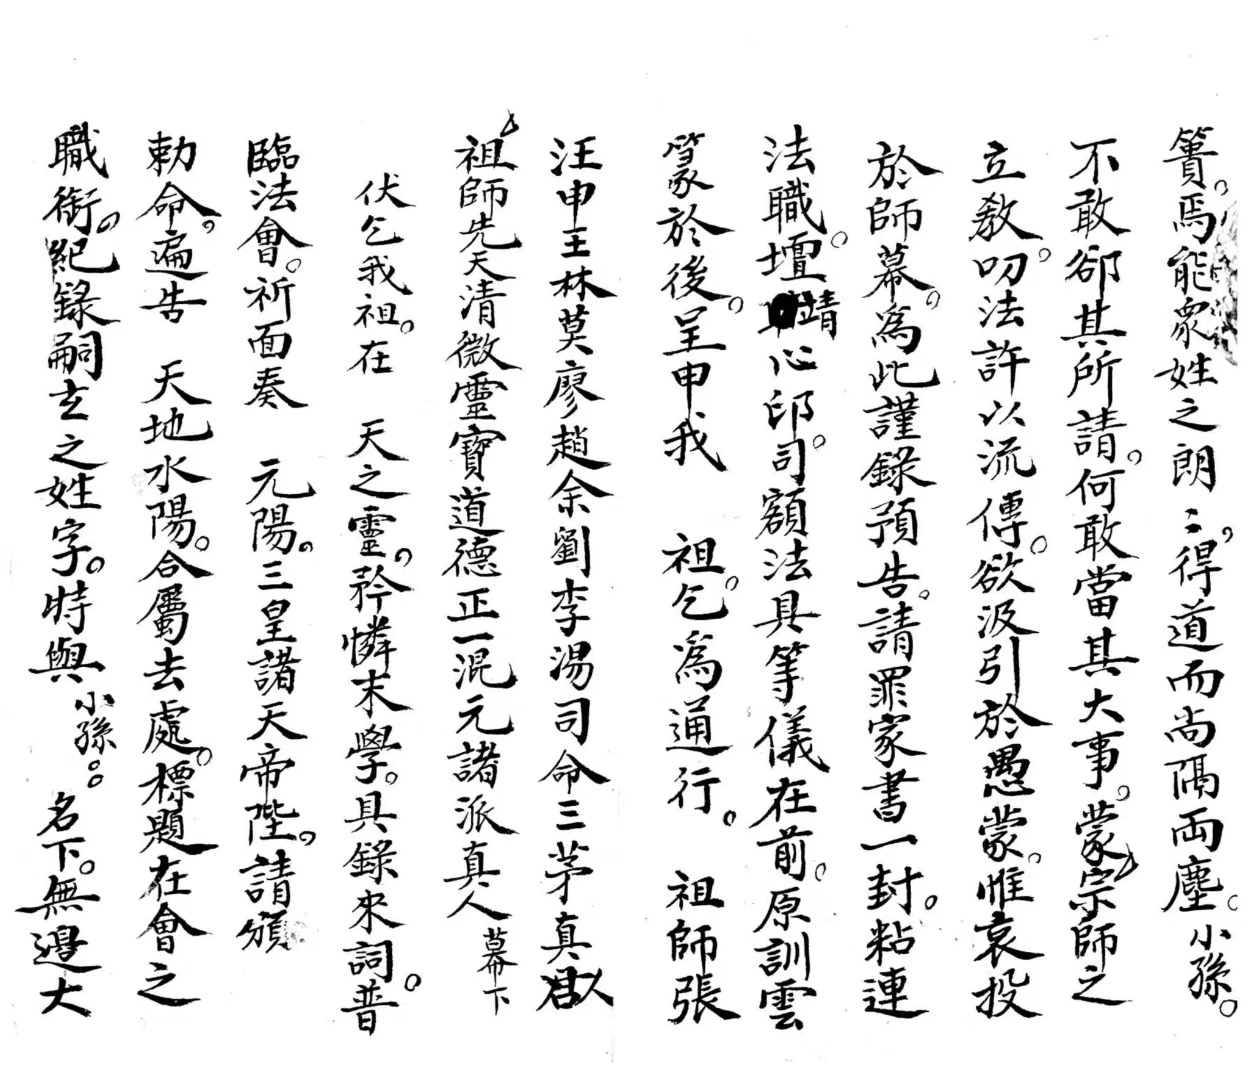 簀。焉能衆姓之朗〻。得道而尚隔両塵。小孫。
不敢卻其所請。何敢當其大事。蒙宗師之
立教。叨法許以流傳。欲汲引於愚蒙。惟哀投
於師幕。為此謹錄預告。請罪家書一封。粘連
法職。壇靖心印。司額法具等儀在前。原訓雲
篆於後。呈申我　祖。乞為通行。　祖師張
汪申王林莫廖趙余劉李湯司命三茅真君
祖師先天清微靈寶道德正一混元諸派真人幕下
伏乞我祖。在　天之靈。矜憐末學。具錄來詞。普
臨法會。祈面奏　元陽。三皇諸天帝陛。請頒
勅命。遍告　天地水陽。合屬去處。標題在會之
職銜。紀錄嗣玄之姓字。時與小孫。。名下。無邊大